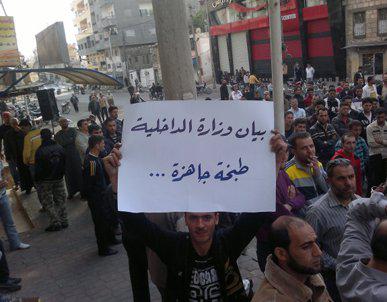 بيان وزارة الداخلية
طبخة جاهزة ...